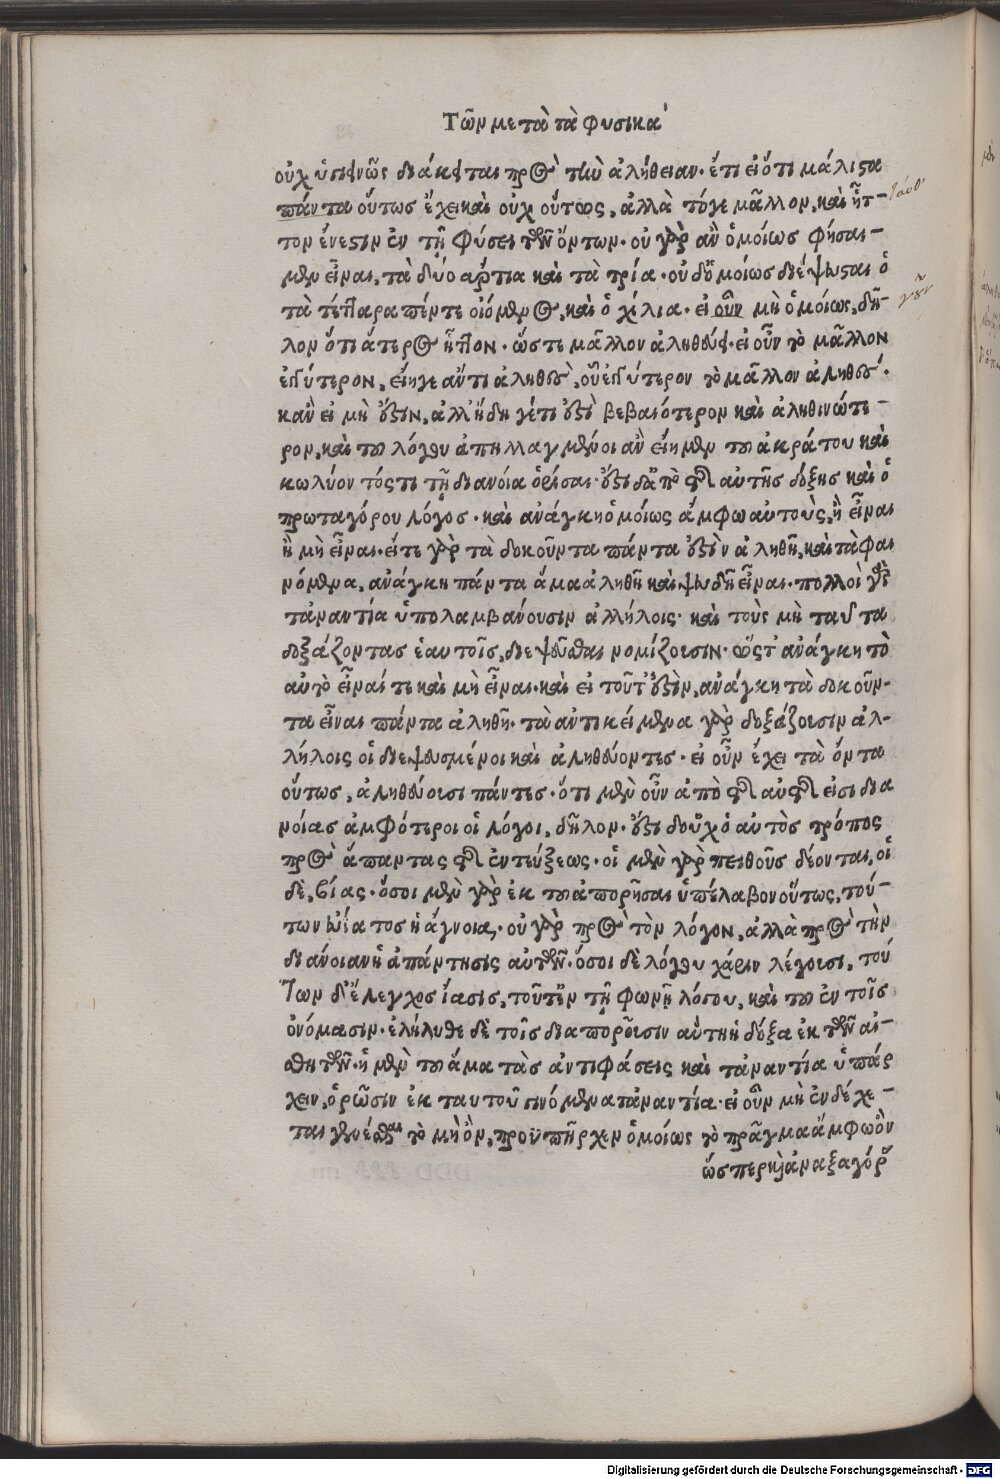 Τῶν μετὰ τὰ φυσικά
οὐχ ὑπεναντίως διάκειται πρὸς τὴν ἀλήθειαν. ἔτι εἰ ὅτι μάλιστα
πάντα οὕτως ἔχει καὶ οὐχ οὕτως, ἀλλὰ τόγε μᾶλλον, καὶ ἧτ-
τον ἔνεστιν ἐν τῇ φύσει τῶν ὄντων. οὐ γὰρ ἂν ὁμοίως φήσαι-
μεν εἶναι, τὰ δύο ἄρτια καὶ τὰ τρία. οὐδ' ὁμοίως διέψευσται ὁ
τὰ τέτταρα πέντε οἰόμενος, καὶ ὁ χίλια. εἰ οὖν μὴ ὁμοίως, δῆ-
λον ὅτι ἅτερος ἧττον. ὥστε μᾶλλον ἀληθεύει. εἰ οὖν τὸ μᾶλλον
ἐγγύτερον, εἴη γε ἄν τι ἀληθὲς, οὗ ἐγγύτερον τὸ μᾶλλον ἀληθές.
κἂν εἰ μὴ ἔστιν, ἀλλ' ἤδη γέ τι ἐστὶ βεβαιότερον καὶ ἀληθινώτε-
ρον, καὶ τοῦ λόγου ἀπηλλαγμένοι ἂν εἴημεν τοῦ ἀκράτου καὶ
κωλύοντός τι τῇ διανοίᾳ ὁρίσαι. ἔστι δ' ἀπὸ τῆς αὐτῆς δόξης καὶ ὁ
πρωταγόρου λόγος. καὶ ἀνάγκη ὁμοίως ἄμφω αὐτοὺς, ἢ εἶναι
ἢ μὴ εἶναι. εἴτε γὰρ τὰ δοκοῦντα πάντα ἐστὶν ἀληθῆ, καὶ τὰ φαι
νόμενα, ἀνάγκη πάντα ἅμα ἀληθῆ καὶ ψευδῆ εἶναι. πολλοὶ γὰρ
τἀναντία ὑπολαμβάνουσιν ἀλλήλοις. καὶ τοὺς μὴ ταὐτὰ
δοξάζοντας ἑαυτοῖς, διεψεῦσθαι νομίζουσιν. ὥστ' ἀνάγκη τὸ
αὐτὸ εἶναί τε καὶ μὴ εἶναι. καὶ εἰ τοῦτ' ἐστὶν, ἀνάγκη τὰ δοκοῦν-
τα εἶναι πάντα ἀληθῆ. τὰ ἀντικείμενα γὰρ δοξάζουσιν ἀλ-
λήλοις οἱ διεψευσμένοι καὶ ἀληθεύοντες. εἰ οὖν ἔχει τὰ ὄντα
οὕτως, ἀληθεύουσι πάντες. ὅτι μὲν οὖν ἀπὸ τῆς αὐτῆς εἰσι δια
νοίας ἀμφότεροι οἱ λόγοι, δῆλον. ἔστι δ' οὐχ ὁ αὐτὸς τρόπος
πρὸς ἅπαντας τῆς ἐντεύξεως. οἱ μὲν γὰρ πειθοῦς δέονται, οἱ
δὲ, βίας. ὅσοι μὲν γὰρ ἐκ τοῦ ἀπορῆσαι ὑπέλαβον οὕτως, τού-
των εὐίατος ἡ ἄγνοια, οὐ γὰρ πρὸς τὸν λόγον, ἀλλὰ πρὸς τὴν
διάνοιαν ἡ ἀπάντησις αὐτῶν. ὅσοι δὲ λόγου χάριν λέγουσι, τού
των δ' ἔλεγχος ἴασις, τοῦ τ' ἐν τῇ φωνῇ λόγου, καὶ τοῦ ἐν τοῖς
ὀνόμασιν. ἐλήλυθε δὲ τοῖς διαποροῦσιν αὕτη ἡ δόξα ἐκ τῶν αἰ-
σθητῶν. ἡ μὲν τοῦ ἅμα τὰς ἀντιφάσεις καὶ τἀναντία ὑπάρ
χειν, ὁρῶσιν ἐκ ταυτοῦ γινόμενα τἀναντία. εἰ οὖν μὴ ἐνδέχε-
ται γενέσθαι τὸ μὴ ὂν, προϋπῆρχεν ὁμοίως τὸ πρᾶγμα ἄμφω ὂν
ὥσπερ καὶ ἀναξαγόρου